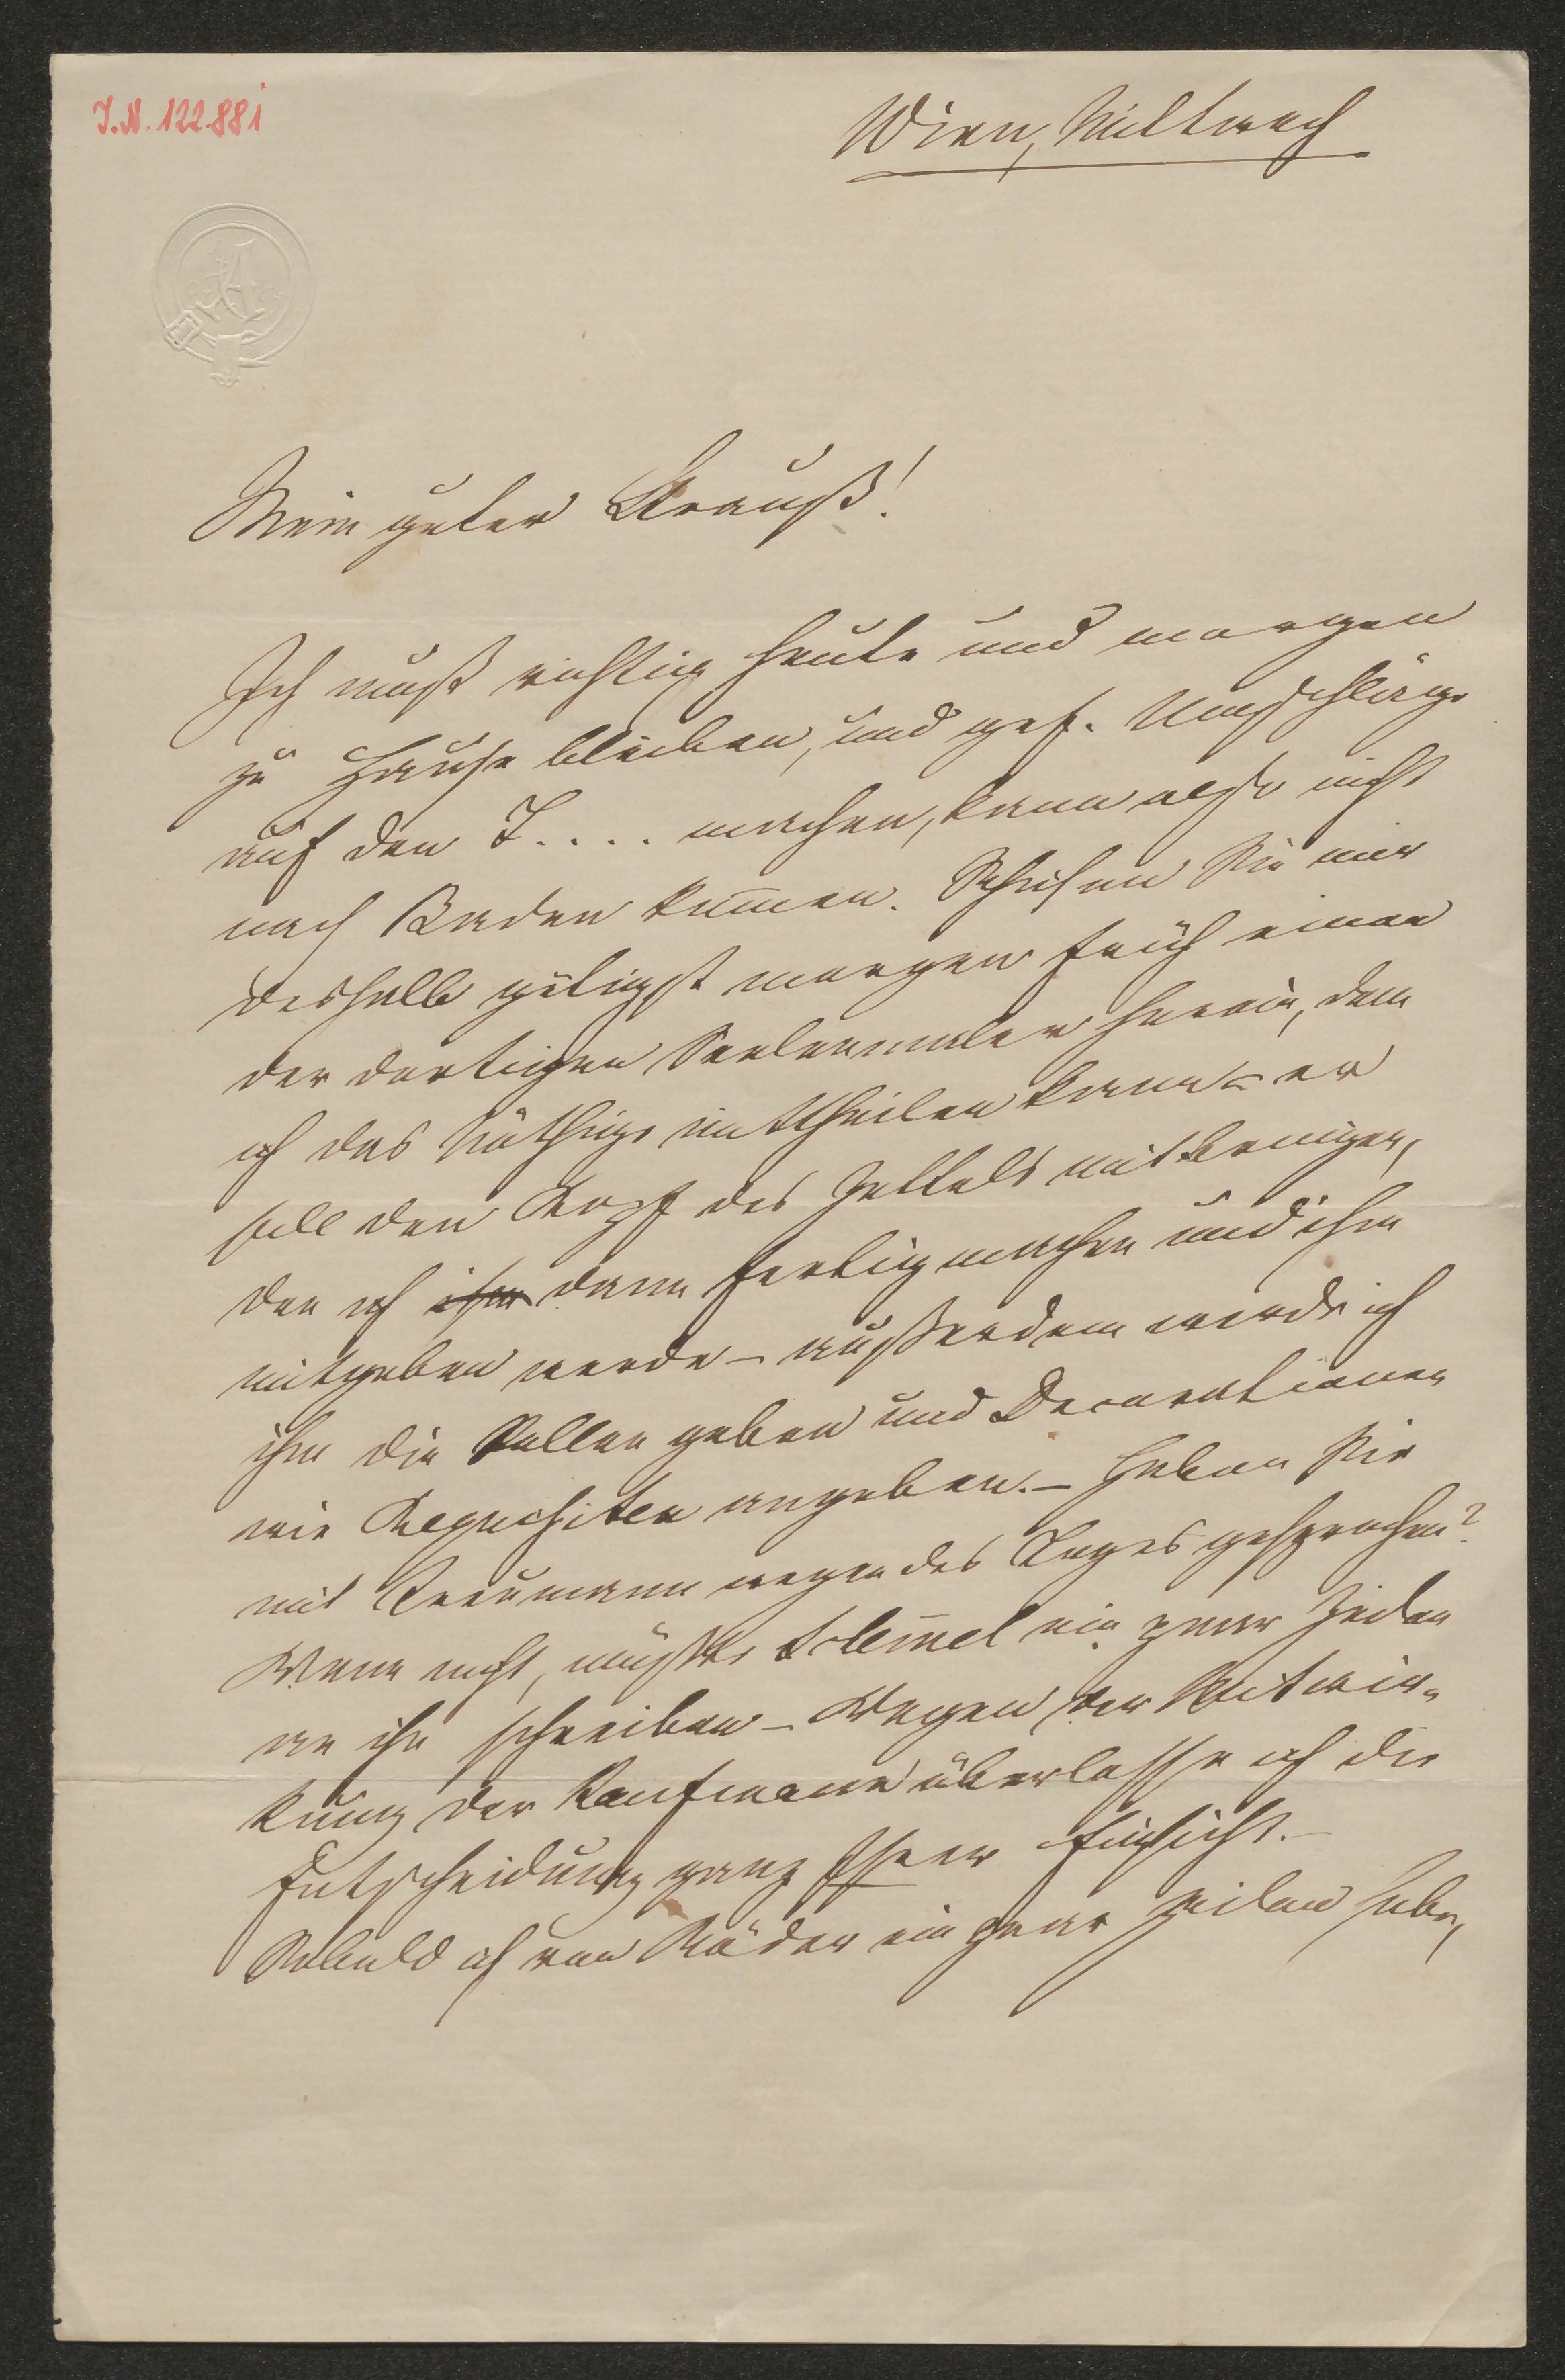 I.N. 122.881
Wien, Mittwoch
Mein guter Krauß!
Ich muß richtig heute und morgen
zu Hause bleiben, und gef. Umschläge
auf den T.... machen, kann also nicht
nach Baden kommen. Schicken Sie mir
deshalb gütigst morgen früh einen
der dortigen herein, dem
ich das Nöthige mittheilen kann – er
soll den Kopf des Zettels mitbringen,
den ich ihm dann fertig machen und ihm
mitgeben werde – außerdem werde ich
ihm die Rollen geben und Decorationen
wie Requisiten angeben. – Haben Sie
mit Treumann wegen des Tages gesprochen?
Wenn nicht, müßte ein paar Zeilen
an ihn schreiben – Wegen der Mitwir-
kung der Kaufmann überlasse ich die
Entscheidung ganz Ihrer Einsicht. –
Sobald ich von Räder ein paar Zeilen habe,